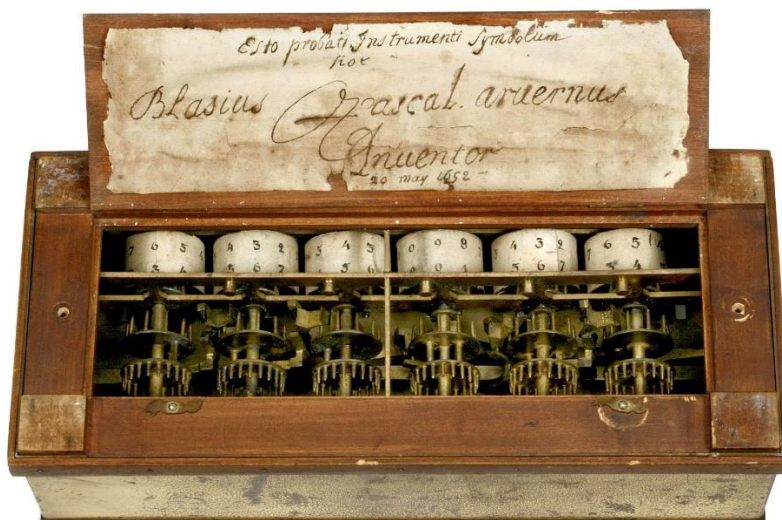 Esto probati Instrumenti Symbolum
hoc
Blasius Pascal. arvernus
Inventor
20 may 1652
7 6 5 4 3 2 5 4 3 0 9 8 4 3 2 6 5
3 4 5 6 7 5 6 0 1 5 6 7 5 4